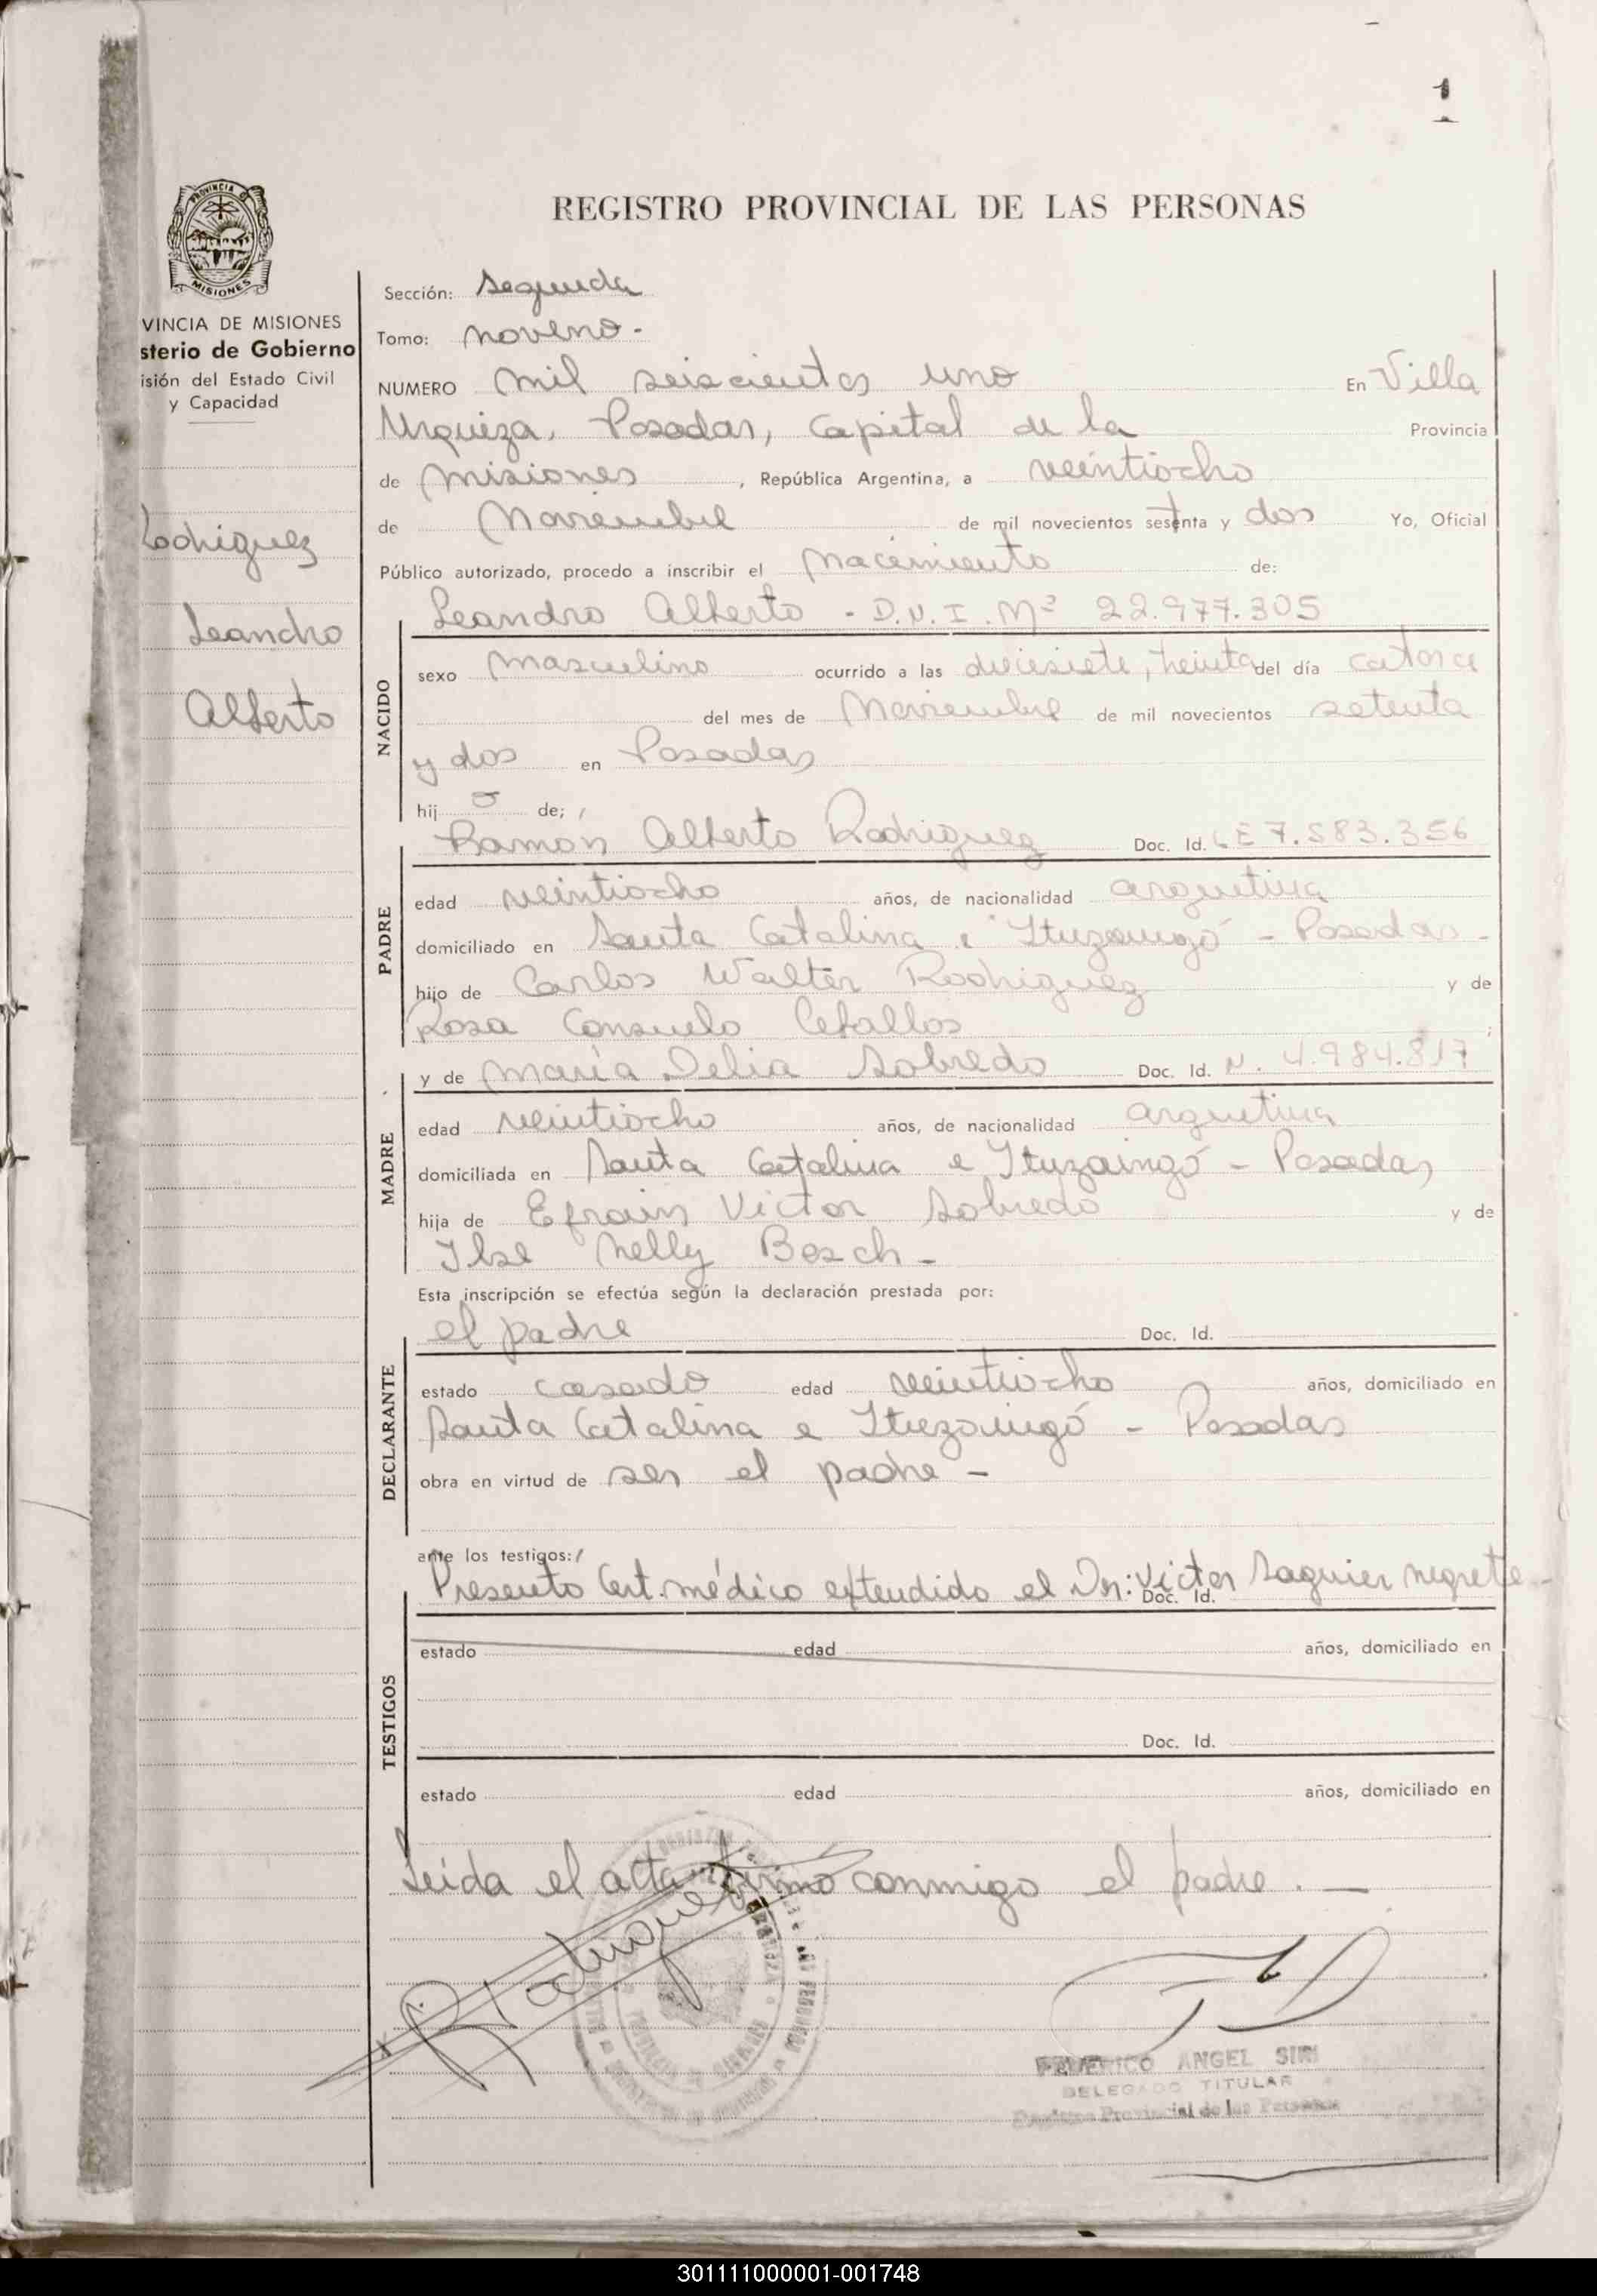 1
REGISTRO PROVINCIAL DE LAS PERSONAS
PROVINCIA
MISIONES
VINCIA DE MISIONES
sterio de Gobierno
isión del Estado Civil
y Capacidad
Rodriguez
Leandro
Alberto
Sección: Segunda
Tomo: noveno.
NUMERO mil seiscientos uno En Villa
Urquiza, Posadas, Capital de la Provincia
de Misiones, República Argentina, a veintiocho
de Noviembre de mil novecientos setenta y dos Yo, Oficial
Público autorizado, procedo a inscribir el Nacimiento de:
Leandro Alberto - D.N.I. Nº 22.977.305
NACIDO
sexo Masculino ocurrido a las diecisiete, treinta del día catorce
del mes de Noviembre de mil novecientos setenta
y dos en Posadas
hij o de; /
PADRE
Ramon Alberto Rodriguez Doc. Id. LE 7.583.356
edad veintiocho años, de nacionalidad argentina
domiciliado en Santa Catalina e Ituzaingó - Posadas -
hijo de Carlos Walter Rodriguez y de
Rosa Consuelo Ceballos ;
MADRE
y de María Delia Sobredo Doc. Id. N. 4.984.817
edad veintiocho años, de nacionalidad argentina
domiciliada en Santa Catalina e Ituzaingó - Posadas
hija de Efrain Victor Sobredo y de
Ilse Nelly Bosch -
Esta inscripción se efectúa según la declaración prestada por:
DECLARANTE
el padre Doc. Id.
estado casado edad veintiocho años, domiciliado en
Santa Catalina e Ituzaingó - Posadas
obra en virtud de ser el padre -
ante los testigos: /
TESTIGOS
Presento Cert. médico extendido el Dr: Victor Saguier Negrete -
Doc. Id.
estado edad años, domiciliado en
Doc. Id.
estado edad años, domiciliado en
Leida el acta firmo conmigo el padre. —
Rodriguez
FEDERICO ANGEL SIRI
DELEGADO TITULAR
Registro Provincial de las Personas
301111000001-001748